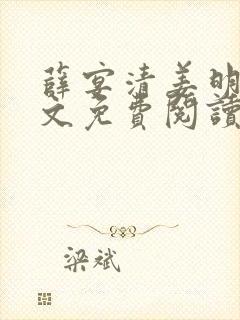 薛宴清姜明
文免費閱讀
梁斌